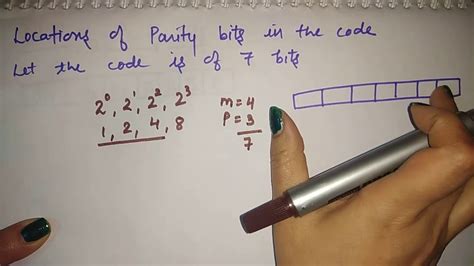 Locations of Parity bits in the code
Let the code is of 7 bits
2⁰, 2¹, 2², 2³
1, 2, 4, 8
m=4
P=3
7